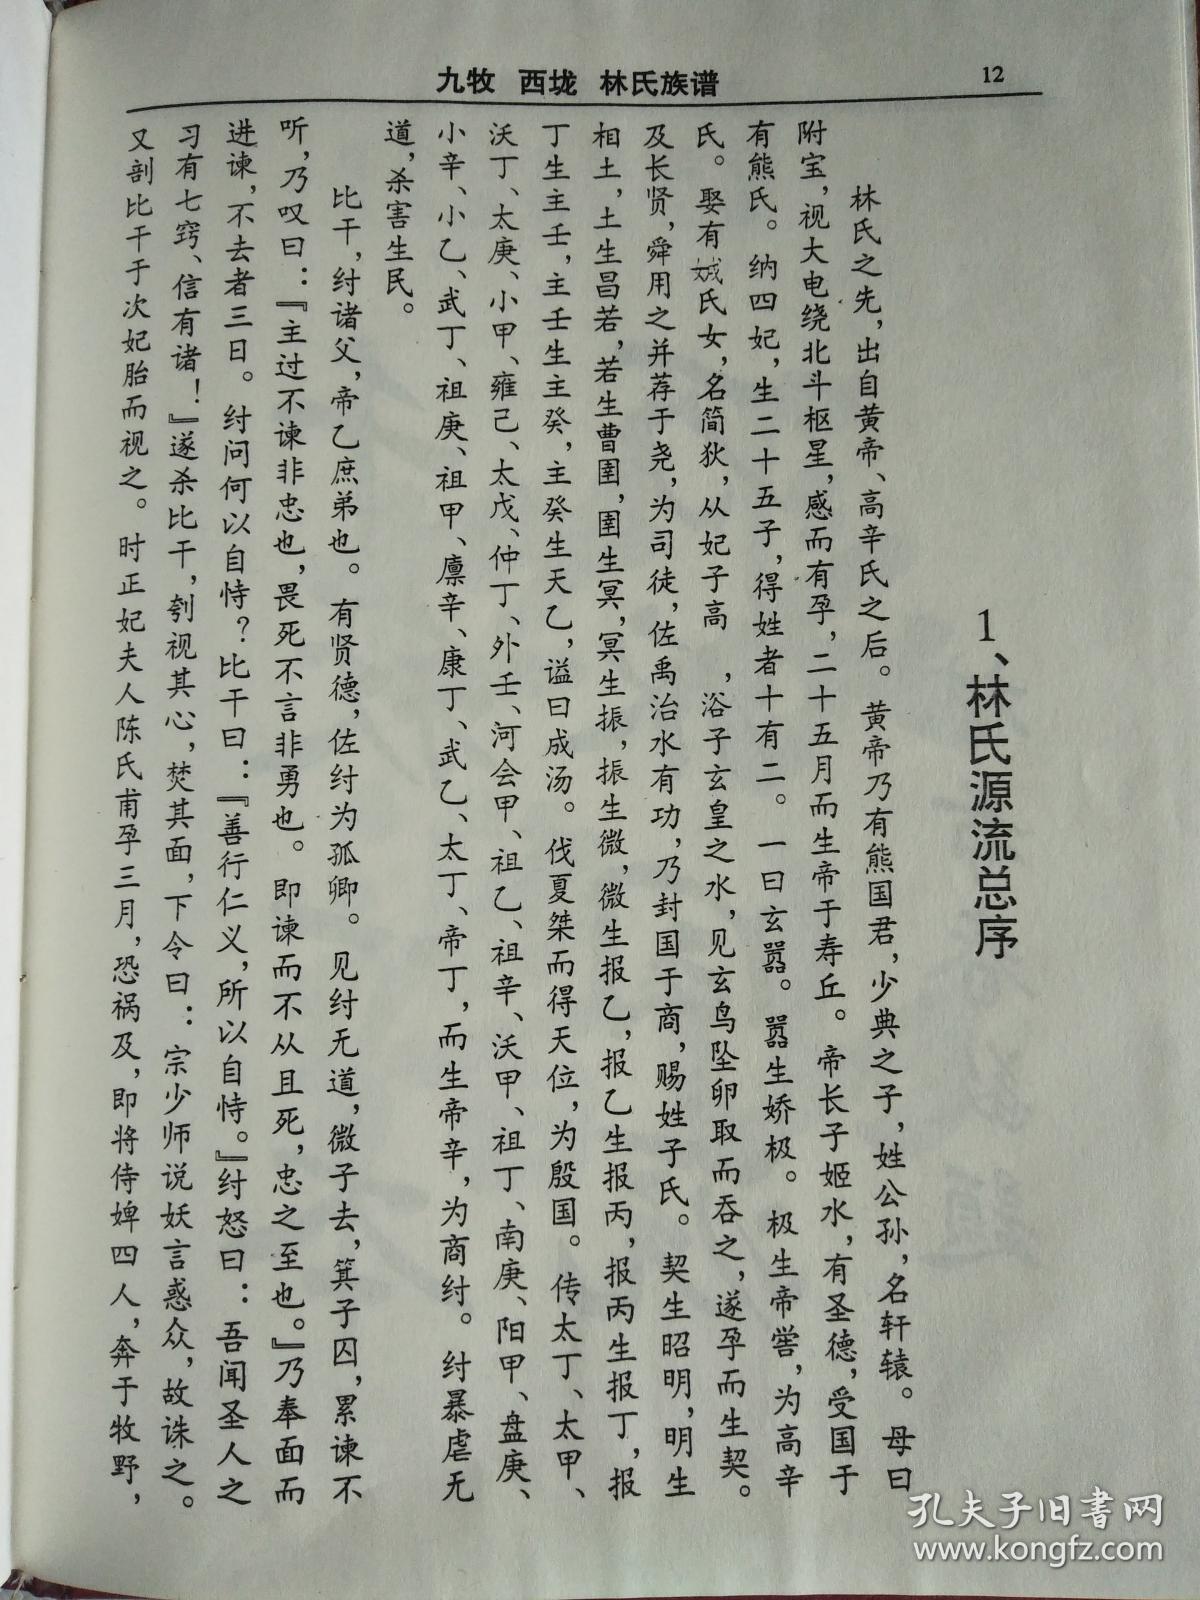 九牧 西垅 林氏族谱
12
1、林氏源流总序
林氏之先，出自黄帝、高辛氏之后。黄帝乃有熊国君，少典之子，姓公孙，名轩辕。母曰
附宝，视大电绕北斗枢星，感而有孕，二十五月而生帝于寿丘。帝长子姬水，有圣德，受国于
有熊氏。纳四妃，生二十五子，得姓者十有二。一曰玄嚣。嚣生娇极。极生帝喾，为高辛
氏。娶有娀氏女，名简狄，从妃子高 ，浴子玄皇之水，见玄鸟坠卵取而吞之，遂孕而生契。
及长贤，舜用之并荐于尧，为司徒，佐禹治水有功，乃封国于商，赐姓子氏。契生昭明，明生
相土，土生昌若，若生曹圉，圉生冥，冥生振，振生微，微生报乙，报乙生报丙，报丙生报丁，报
丁生主壬，主壬生主癸，主癸生天乙，谥曰成汤。伐夏桀而得天位，为殷国。传太丁、太甲、
沃丁、太庚、小甲、雍己、太戊、仲丁、外壬、河会甲、祖乙、祖辛、沃甲、祖丁、南庚、阳甲、盘庚、
小辛、小乙、武丁、祖庚、祖甲、廪辛、康丁、武乙、太丁、帝丁，而生帝辛，为商纣。纣暴虐无
道，杀害生民。
比干，纣诸父，帝乙庶弟也。有贤德，佐纣为孤卿。见纣无道，微子去，箕子囚，累谏不
听，乃叹曰：『主过不谏非忠也，畏死不言非勇也。即谏而不从且死，忠之至也。』乃奉面而
进谏，不去者三日。纣问何以自恃？比干曰：『善行仁义，所以自恃。』纣怒曰：吾闻圣人之
习有七窍、信有诸！』遂杀比干，刳视其心，焚其面，下令曰：宗少师说妖言惑众，故诛之。
又剖比干于次妃胎而视之。时正妃夫人陈氏甫孕三月，恐祸及，即将侍婢四人，奔于牧野，
孔夫子旧书网
www.kongfz.com